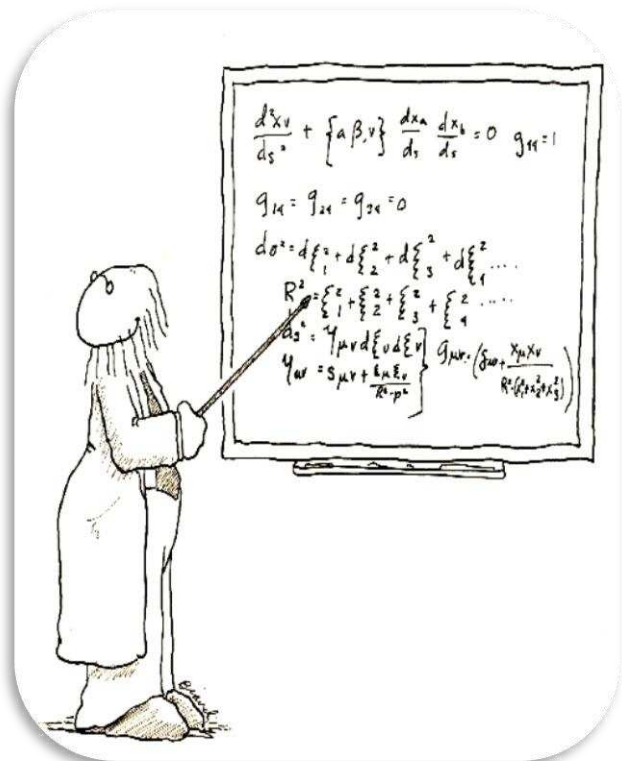 d²xν/ds² + {aβ,ν} dxa/ds dxb/ds = 0 g₄₄ = 1
g₁₄ = g₂₄ = g₃₄ = 0
dσ² = dξ₁² + dξ₂² + dξ₃² + dξ₄² ....
R² = ξ₁² + ξ₂² + ξ₃² + ξ₄² ....
ds² = γμν dξν dξν}
γμν = Sμν + ξμξν/R²-p²
gμν = (δμν + xμxν/R²-(x₁²+x₂²+x₃²))